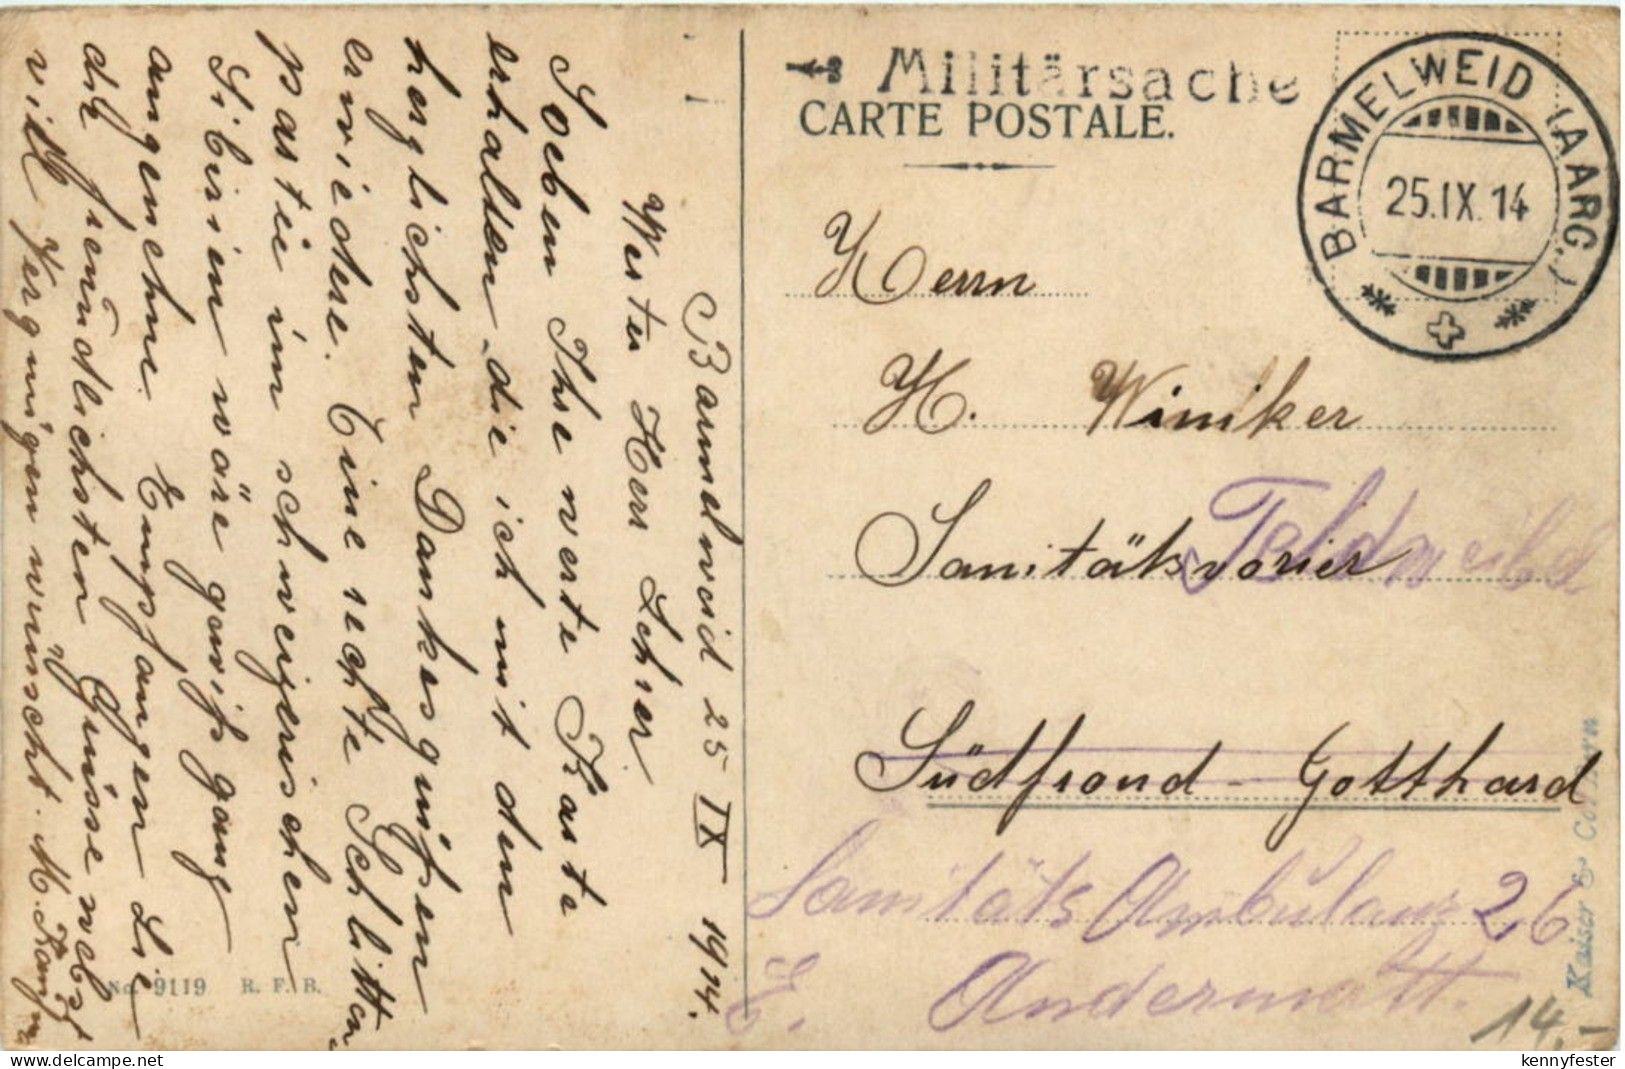 Barmelweid 25 IX 1914.
Werter Herr
Soeben Ihre werte Karte
erhalten, die ich mit den
herzlichsten Dankesgrüßen
erwiedere. Eine rechte Schlitten
partie im schweizerischen
Sibirien wäre gewiß ganz
angenehm. Empfangen Sie
die freundlichsten Grüsse nebst
viel Vergnügen wünscht. M.
No. 9119 R. F. B.
Militärsache
CARTE POSTALE.
BARMELWEID (AARG.)
25.IX.14
Herrn
H. Winiker
Sanitäts
Feldweibel
Südfrond - Gotthard
Sanitäts Ambulanz 26
Andermatt.
Kaiser & Co. Bern
14.-
kennyfester